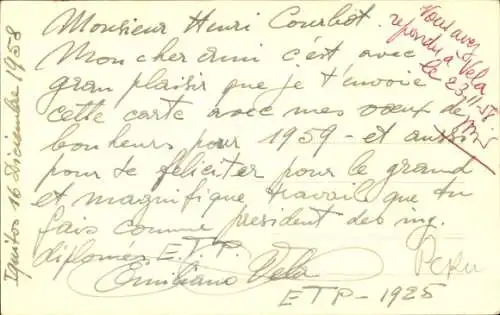 Iquitos 16 Diciembre 1958
Monsieur Henri Courbot.
Mon cher ami c'est avec
gran plaisir que je t'envoie
cette carte avec mes voeux de
bonheurs pour 1959 - et aussi
pour te féliciter pour le grand
et magnifique travail que tu
fais comme president des ing.
diplomés E.T.P.
Emiliano Vela
ETP - 1925
Vous avez
repondu a Vela
le 23
Peru